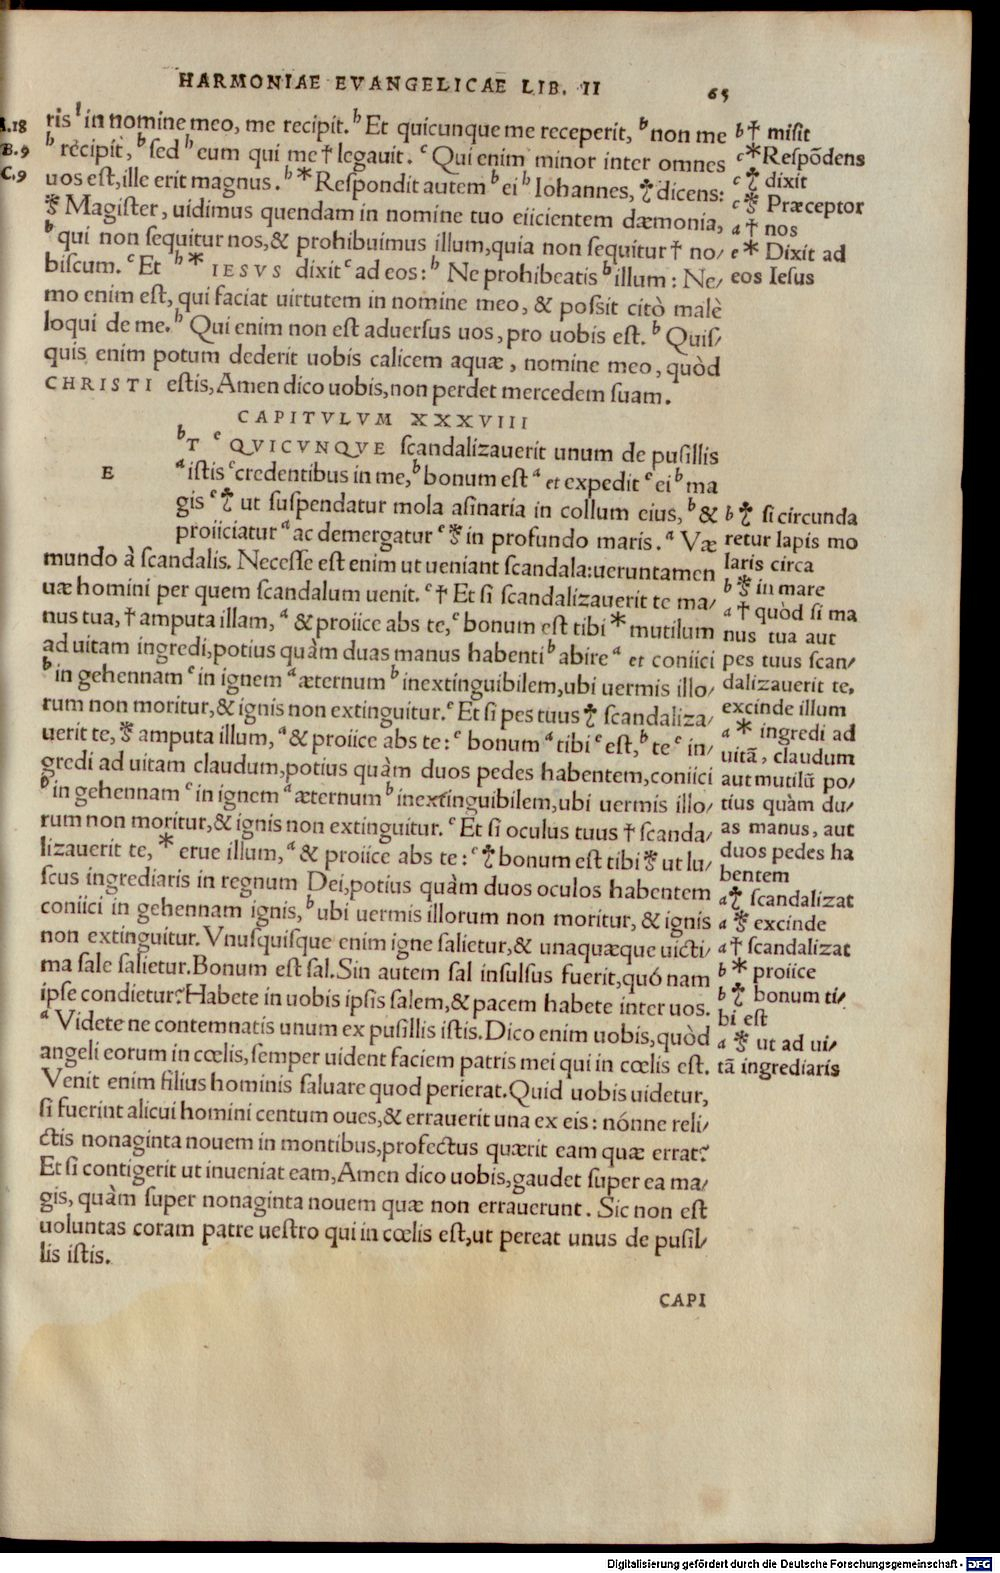 HARMONIAE EVANGELICAE LIB. II
65
A.18
B.9
C.9
ris l in nomine meo, me recipit. b Et quicunque me receperit, b non me
b recipit, b sed b eum qui me † legauit. c Qui enim minor inter omnes
uos est, ille erit magnus. b * Respondit autem b ei b Iohannes, ‡ dicens:
§ Magister, uidimus quendam in nomine tuo eiicientem dæmonia,
b qui non sequitur nos, & prohibuimus illum, quia non sequitur † no/
biscum. c Et b * IESVS dixit c ad eos: b Ne prohibeatis b illum: Ne/
mo enim est, qui faciat uirtutem in nomine meo, & possit citò malè
loqui de me. b Qui enim non est aduersus uos, pro uobis est. b Quis/
quis enim potum dederit uobis calicem aquæ, nomine meo, quòd
CHRISTI estis, Amen dico uobis, non perdet mercedem suam.
b † misit
c * Respõdens
c ‡ dixit
c § Præceptor
a † nos
e * Dixit ad
eos Iesus
CAPITVLVM XXXVIII
E
b T c QVICVNQVE scandalizauerit unum de pusillis
a istis c credentibus in me, b bonum est a et expedit c ei b ma
gis c ‡ ut suspendatur mola asinaria in collum eius, b &
proiiciatur a ac demergatur c § in profundo maris. a Væ
mundo à scandalis. Necesse est enim ut ueniant scandala: ueruntamen
uæ homini per quem scandalum uenit. c † Et si scandalizauerit te ma/
nus tua, † amputa illam, a & proiice abs te, c bonum est tibi * mutilum
ad uitam ingredi, potius quàm duas manus habenti b abire a et coniici
b in gehennam c in ignem a æternum b inextinguibilem, ubi uermis illo/
rum non moritur, & ignis non extinguitur. c Et si pes tuus ‡ scandaliza/
uerit te, § amputa illum, a & proiice abs te: c bonum a tibi c est, b te c in/
gredi ad uitam claudum, potius quàm duos pedes habentem, coniici
b in gehennam c in ignem a æternum b inextinguibilem, ubi uermis illo/
rum non moritur, & ignis non extinguitur. c Et si oculus tuus † scanda/
lizauerit te, * erue illum, a & proiice abs te: c ‡ bonum est tibi § ut lu/
scus ingrediaris in regnum Dei, potius quàm duos oculos habentem
coniici in gehennam ignis, b ubi uermis illorum non moritur, & ignis
non extinguitur. Vnusquisque enim igne salietur, & unaquæque uicti/
ma sale salietur. Bonum est sal. Sin autem sal insulsus fuerit, quó nam
ipse condietur? Habete in uobis ipsis salem, & pacem habete inter uos.
a Videte ne contemnatis unum ex pusillis istis. Dico enim uobis, quòd
angeli eorum in cœlis, semper uident faciem patris mei qui in cœlis est.
Venit enim filius hominis saluare quod perierat. Quid uobis uidetur,
si fuerint alicui homini centum oues, & errauerit una ex eis: nónne reli/
ctis nonaginta nouem in montibus, profectus quærit eam quæ errat?
Et si contigerit ut inueniat eam, Amen dico uobis, gaudet super ea ma/
gis, quàm super nonaginta nouem quæ non errauerunt. Sic non est
uoluntas coram patre uestro qui in cœlis est, ut pereat unus de pusil/
lis istis.
b ‡ si circunda
retur lapis mo
laris circa
b § in mare
a † quòd si ma
nus tua aut
pes tuus scan/
dalizauerit te,
excinde illum
a * ingredi ad
uitã, claudum
aut mutilũ po/
tius quàm du/
as manus, aut
duos pedes ha
bentem
a ‡ scandalizat
a § excinde
a † scandalizat
b * proiice
b ‡ bonum ti/
bi est
a § ut ad ui/
tã ingrediaris
CAPI
Digitalisierung gefördert durch die Deutsche Forschungsgemeinschaft - DFG